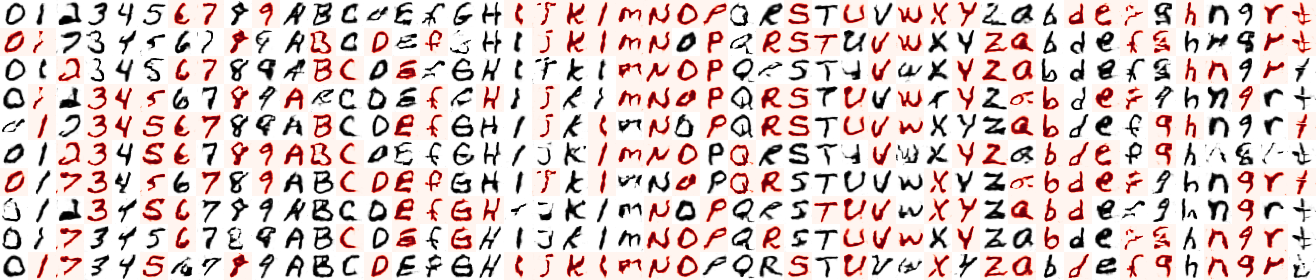 0 1 2 3 4 5 6 7 8 9 A B C D E f G H I J K l m N O P Q R S T U V W X Y Z a b d e f g h n q r t
0 1 2 3 4 5 6 7 8 9 A B C D E f G H I J K l m N O P Q R S T U V W X Y Z a b d e f g h n q r t
0 1 2 3 4 5 6 7 8 9 A B C D E f G H I J K l m N O P Q R S T U V W X Y Z a b d e f g h n q r t
0 1 2 3 4 5 6 7 8 9 A B C D E f G H I J K l m N O P Q R S T U V W X Y Z a b d e f g h n q r t
0 1 2 3 4 5 6 7 8 9 A B C D E f G H I J K l m N O P Q R S T U V W X Y Z a b d e f g h n q r t
0 1 2 3 4 5 6 7 8 9 A B C D E f G H I J K l m N O P Q R S T U V W X Y Z a b d e f g h n q r t
0 1 2 3 4 5 6 7 8 9 A B C D E f G H I J K l m N O P Q R S T U V W X Y Z a b d e f g h n q r t
0 1 2 3 4 5 6 7 8 9 A B C D E f G H I J K l m N O P Q R S T U V W X Y Z a b d e f g h n q r t
0 1 2 3 4 5 6 7 8 9 A B C D E f G H I J K l m N O P Q R S T U V W X Y Z a b d e f g h n q r t
0 1 2 3 4 5 6 7 8 9 A B C D E F G H I J K l m N O P Q R S T U V W X Y Z a b d e f g h n q r t